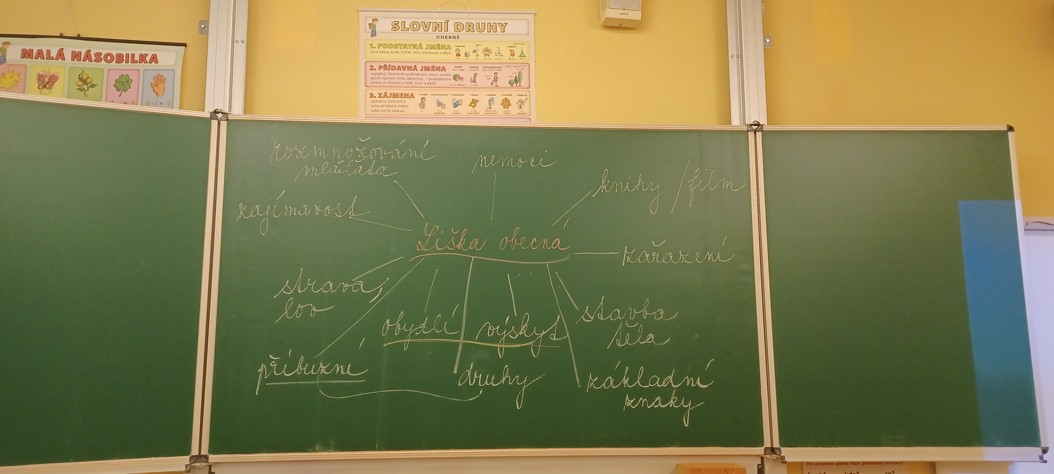 MALÁ NÁSOBILKA
SLOVNÍ DRUHY
OHEBNÉ
1. PODSTATNÁ JMÉNA
2. PŘÍDAVNÁ JMÉNA
3. ZÁJMENA
rozmnožování
mláďata
nemoci
knihy / film
zajímavost
Liška obecná
zařazení
strava,
lov
obydlí
výskyt
stavba
těla
příbuzné
druhy
základní
znaky